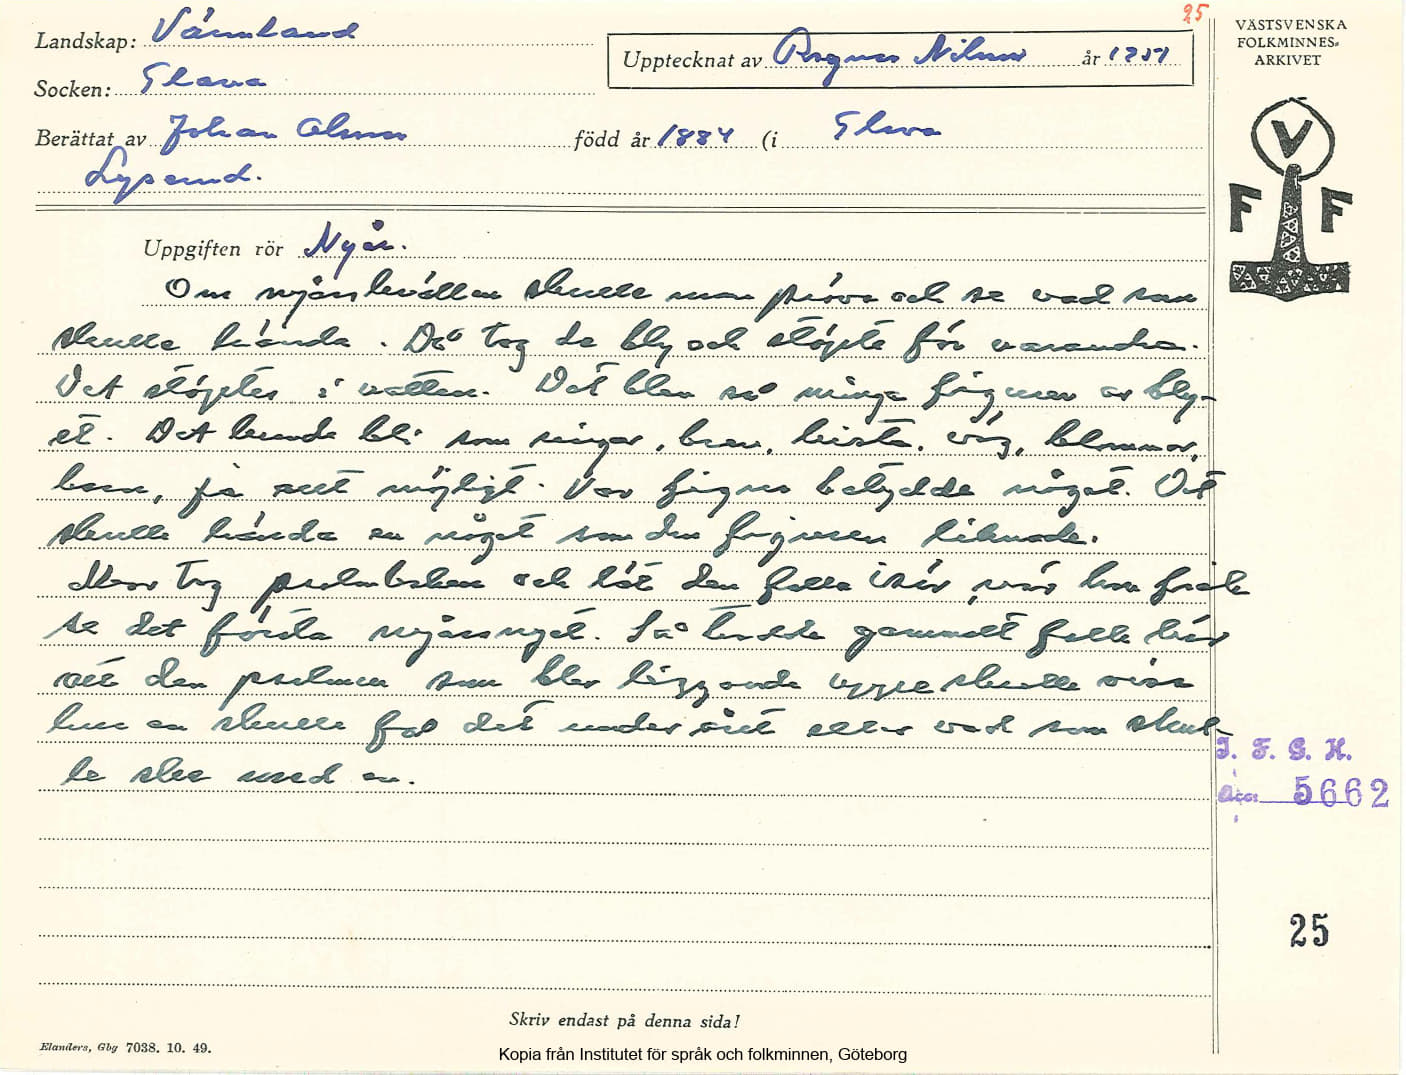 25
Landskap: Värmland
VÄSTSVENSKA
FOLKMINNES-
ARKIVET
Upptecknat av Ragnar Nilsson år 1951
Socken: Glava
Berättat av Johan Olsson född år 1884 (i Glava
Lysend.
V
F F
Uppgiften rör Nyår.
Om nyårskvällen skulle man pröva och se vad som
skulle hända. Då tog de bly och stöpte för varandra.
Det stöptes i vatten. Det blev så många figurer av bly-
et. Det kunde bli som ringar, brev, kista, väg, blommor,
barn, ja allt möjligt. Var figur betydde något. Det
skulle hända en något som den figuren liknade.
Mor tog psalmboken och lät den falla isär, när hon fick
se det första nyårsnyet. Så trodde gammalt folk här
att den psalmen som blev liggande uppe skulle visa
hur en skulle få det under året eller vad som skul-
le ske med en.
I. F. G. H.
Acc. 5662
25
Skriv endast på denna sida!
Elanders, Gbg 7038. 10. 49.
Kopia från Institutet för språk och folkminnen, Göteborg